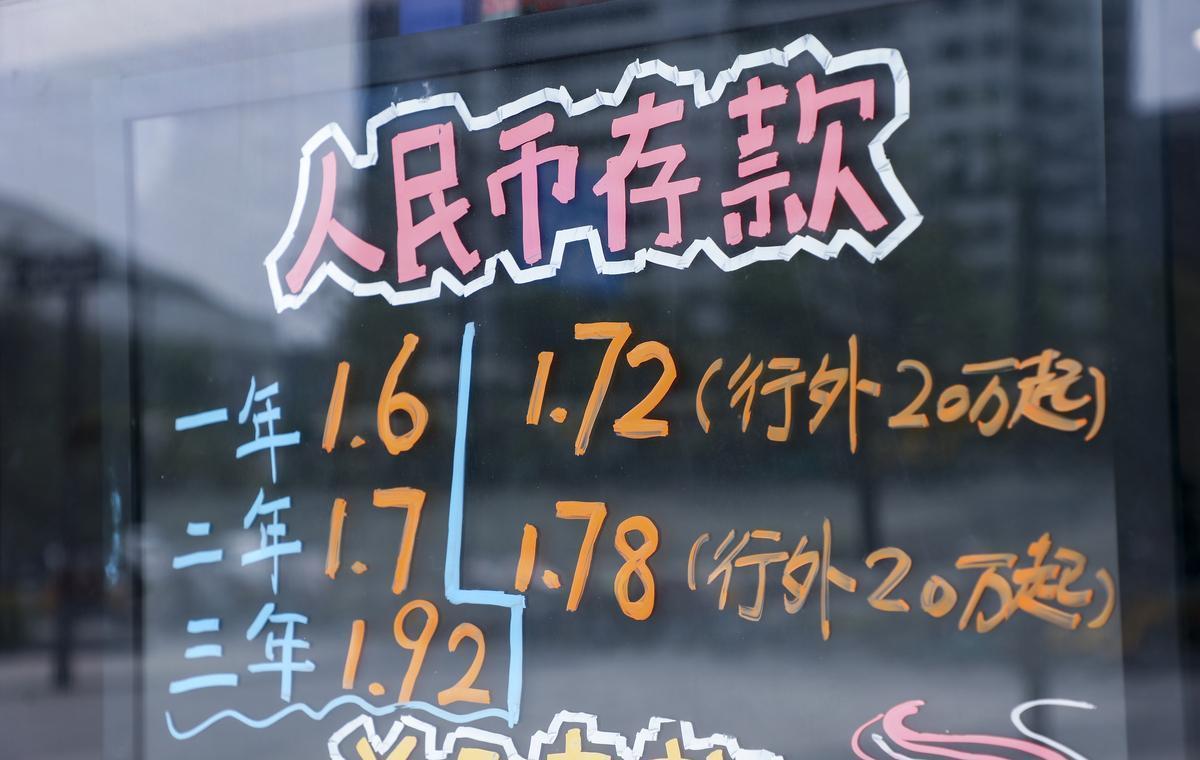 人民币存款
一年 1.6 1.72(行外20万起)
二年 1.7 1.78(行外20万起)
三年 1.92